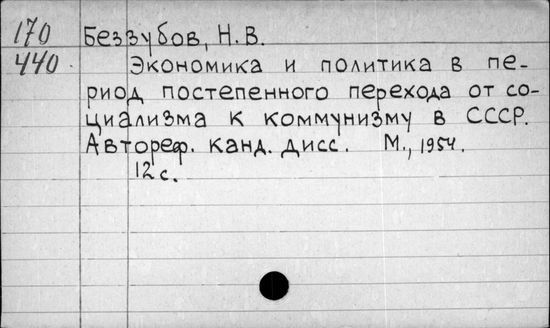 170 Беззубов, Н.В.
440. Экономика и политика в пе-
риод постепенного перехода от со-
циализма к коммунизму в СССР.
Автореф. канд. дисс. М., 1954.
12 с.